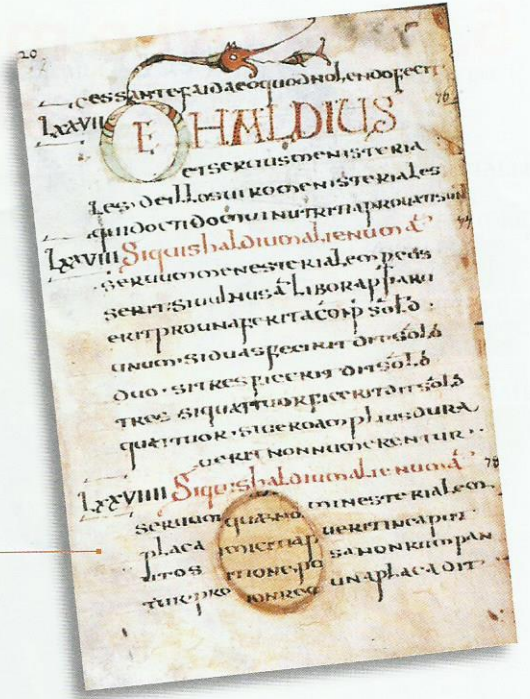 20
cessante faida eo quod nolendo fecit
LXXVII DE HALDIUS 76
et seruus menisteria
les · De illos uiro menisteriales
qui docti domui nutriti aprouati sun
LXXVIII Siquis haldium alienum a
seruum menesterialem percus
serit · si uulnus a libor apparu
erit pro una ferita conp sold
unum · si duas fecerit dit sold
duo · si tres ficerit dit sold
tres si quattuor ficerit dit sold
quattuor · si uero amplius dura
uerit non numerentur ·
LXXVIIII Siquis haldium alienum a 78
seruum ministerialem
placa uerit in capite
sa non rumpan
tur · pro una placa dit